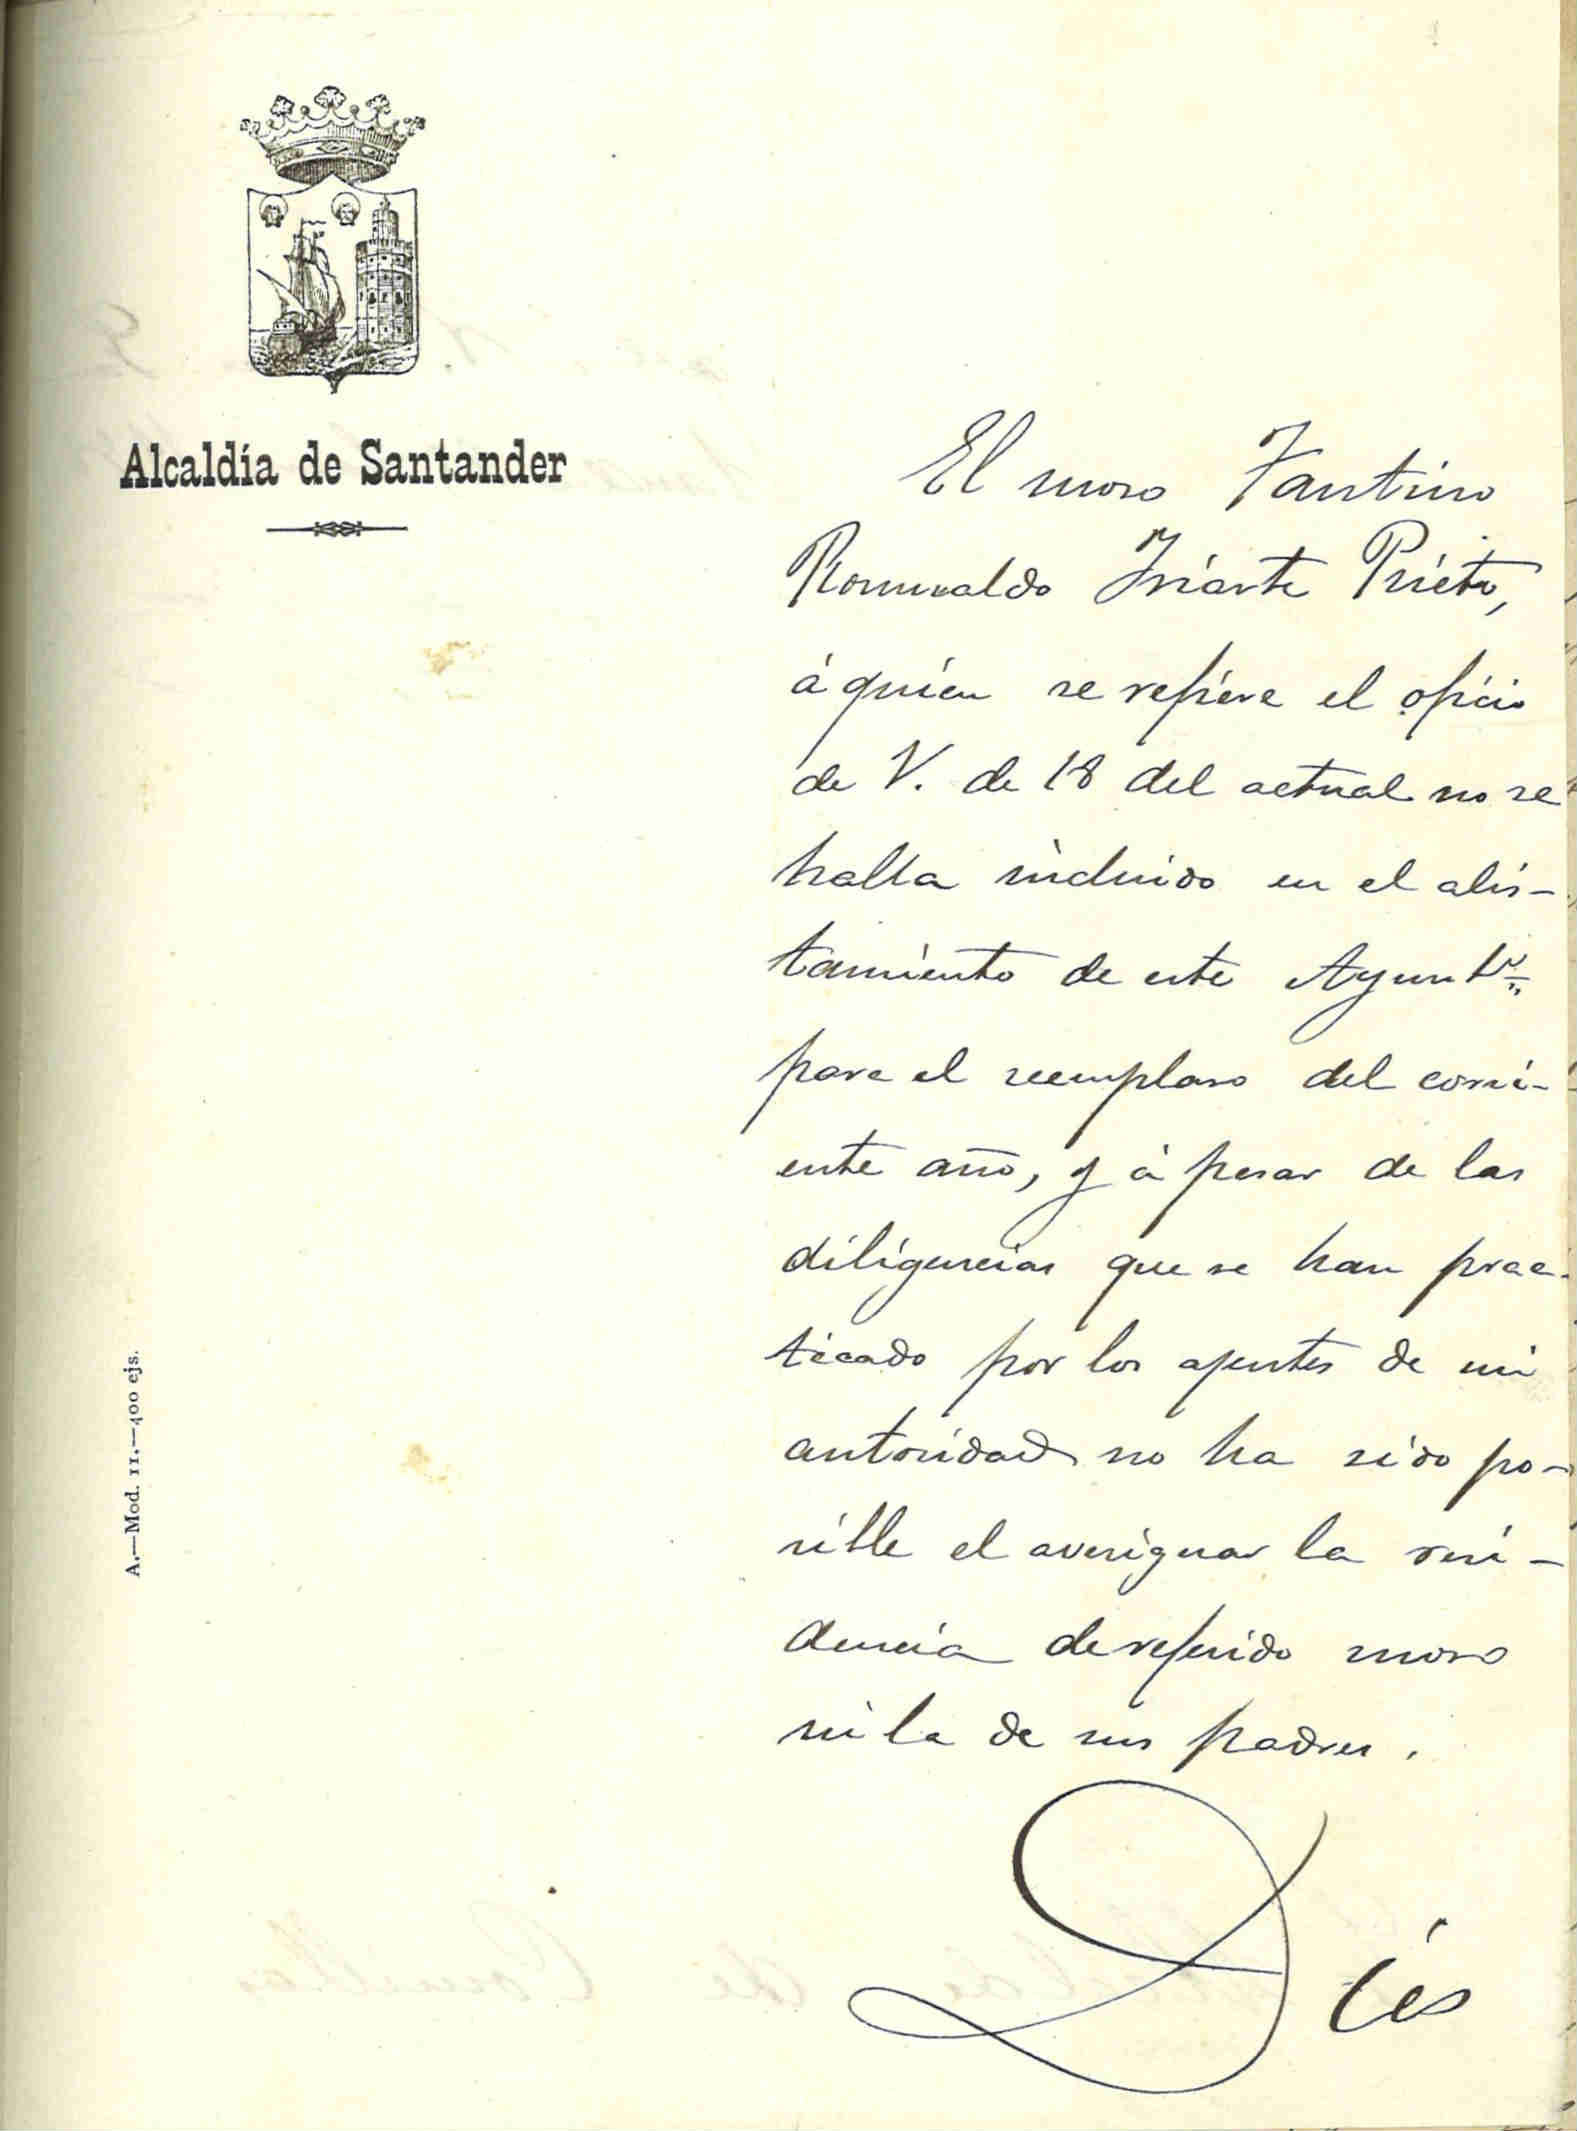 Alcaldía de Santander
El moso Faustino
Romualdo Iriarte Prieto,
á quien se refiere el oficio
de V. de 18 del actual no se
halla incluido en el alis-
tamiento de este Ayunto.
para el reemplaso del corri-
ente año, y á pesar de las
diligencias que se han prac-
ticado por los ajentes de mi
autoridad no ha sido po-
sible el averiguar la resi-
dencia de referido moso
ni la de sus padres.
Dios
A.—Mod. 11.—400 ejs.